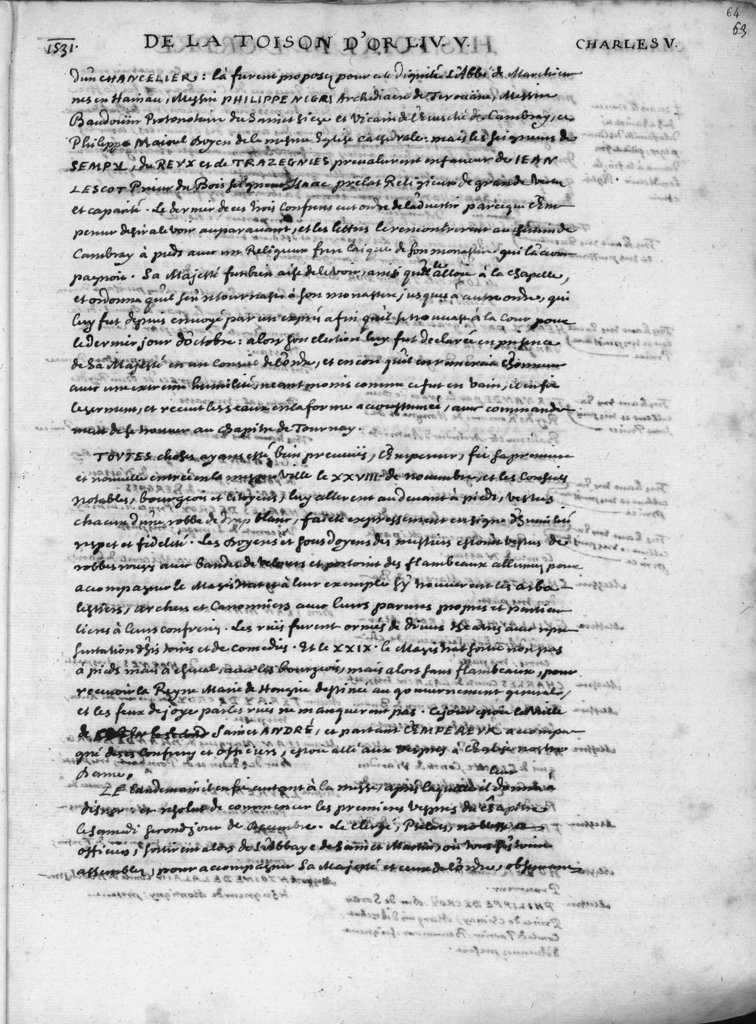 64
63
1531. DE LA TOISON D'OR LIV. V. CHARLES V.
d'un CHANCELIER: là furent proposez pour ceste dignité l'Abbé de Marchien
nes en Hainau, Messire PHILIPPE NIGRI Archidiacre de Terouane, Messire
Baudouin Protonotaire du Saint Siege et Vicaire de l'Evesché de Cambray, et
Philippe Majoul Doyen de la mesme Eglise Cathedrale. mais les Seigneurs de
SEMPY, du REUX et de TRAZEGNIES prevalurent en faveur de JEAN
LESCOT Prieur du Bois Seigneur Isaac, prelat Religieux de grande vertu
et capacité. Le dernier de ces trois Confreres eut ordre de l'advertir parceque l'Em
pereur desiroit le voir auparavant, et les lettres le rencontrerent au chemin de
Cambray à pieds avec un Religieux frere laique de son monastere qui l'accom
pagnoit. Sa Majesté fut bien aise de le voir, ainsi qu'elle alloit à la chapelle,
et ordonna qu'il s'en retournast à son monastere, jusques à autre ordre, qui
luy fut depuis envoyé par un exprés afin qu'il se trouvast à la Cour pour
le dernier jour d'Octobre: alors son election luy fut declarée en presence
de Sa Majesté en un Conseil de l'Ordre, et encore qu'il en remerciast l'honneur
avec une extreme humilité, neantmoins comme ce fut en vain, il en fit
le serment, et receut les seaux en la forme accoustumée, avec commande
ment de se trouver au Chapitre de Tournay.
TOUTES choses ayant esté bien preveües, l'Empereur, fit sa premiere
et nouvelle entrée en la mesme ville le XXVIII. de Novembre, et les Consuls
notables, bourgeois et citoyens, luy allerent au devant à pieds, vestus
chacun d'une robbe de drap blanc, faicte expressement en signe d'humilité
respet et fidelité. Les Doyens et sousdoyens des mestiers estoient vestus de
robbes rouges avec bandes de velours et portoient des flambeaux allumez pour
accompagner le Magistrat et à leur exemple s'y trouverent les arba
lestiers, archers et Canoniers avec leurs parures propres et particu
lieres à leurs confreries. Les rues furent ornées de divers theatres avec repre
sentation d'histoires et de comedies. Et le XXIX. le Magistrat sortit non pas
à pieds mais à cheval, avec les bourgeois, mais alors sans flambeaux, pour
recevoir la Reyne Marie de Hongrie destinée au gouvernement general,
et les feux de joye par les rues ne manquerent pas. le jour estoit la veille
de Saint ANDRÉ, et partant L'EMPEREUR accompa
gné de ses Confreres et officiers, estoit allé aux vespres à l'Eglise nostre
Dame.
LE lendemain il en fit autant à la messe, apres laquelle il donna
disner: et resolut de commencer les premieres vespres du Chapitre
le samedi second jour de Decembre. Le clergé, Prelats, nobles et
officiers, sortirent alors de l'Abbaye de Saint Martin, où tous s'estoient
assemblez, pour accompagner Sa Majesté et ceux de l'Ordre, observant